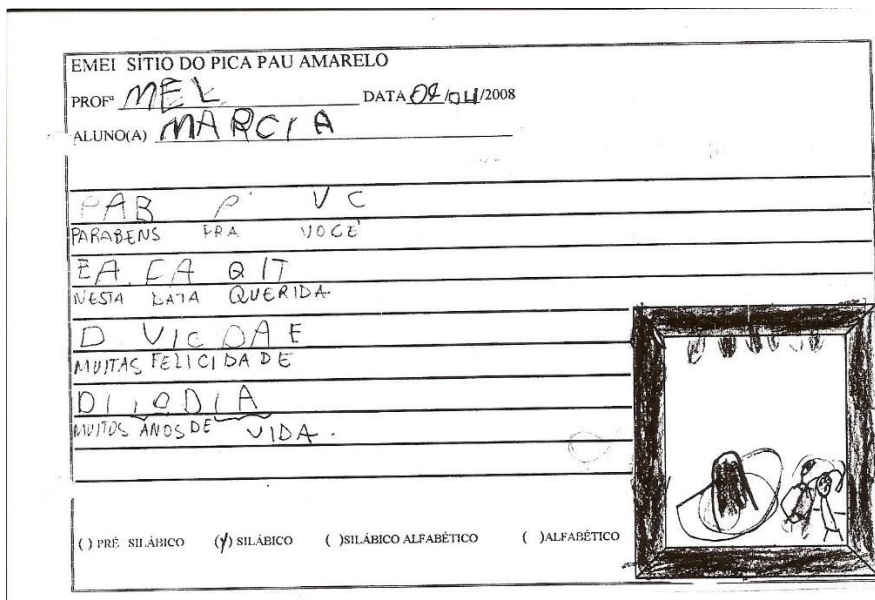 EMEI SÍTIO DO PICA PAU AMARELO
PROFª MEL DATA 09/04/2008
ALUNO(A) MARCIA
PAB P VC
PARABENS PRA VOCÊ
EA EA QIT
NESTA DATA QUERIDA
D VICDAE
MUITAS FELICIDADE
DIIODIA
MUITOS ANOS DE VIDA.
( ) PRÉ SILÁBICO (X) SILÁBICO ( )SILÁBICO ALFABÉTICO ( )ALFABÉTICO